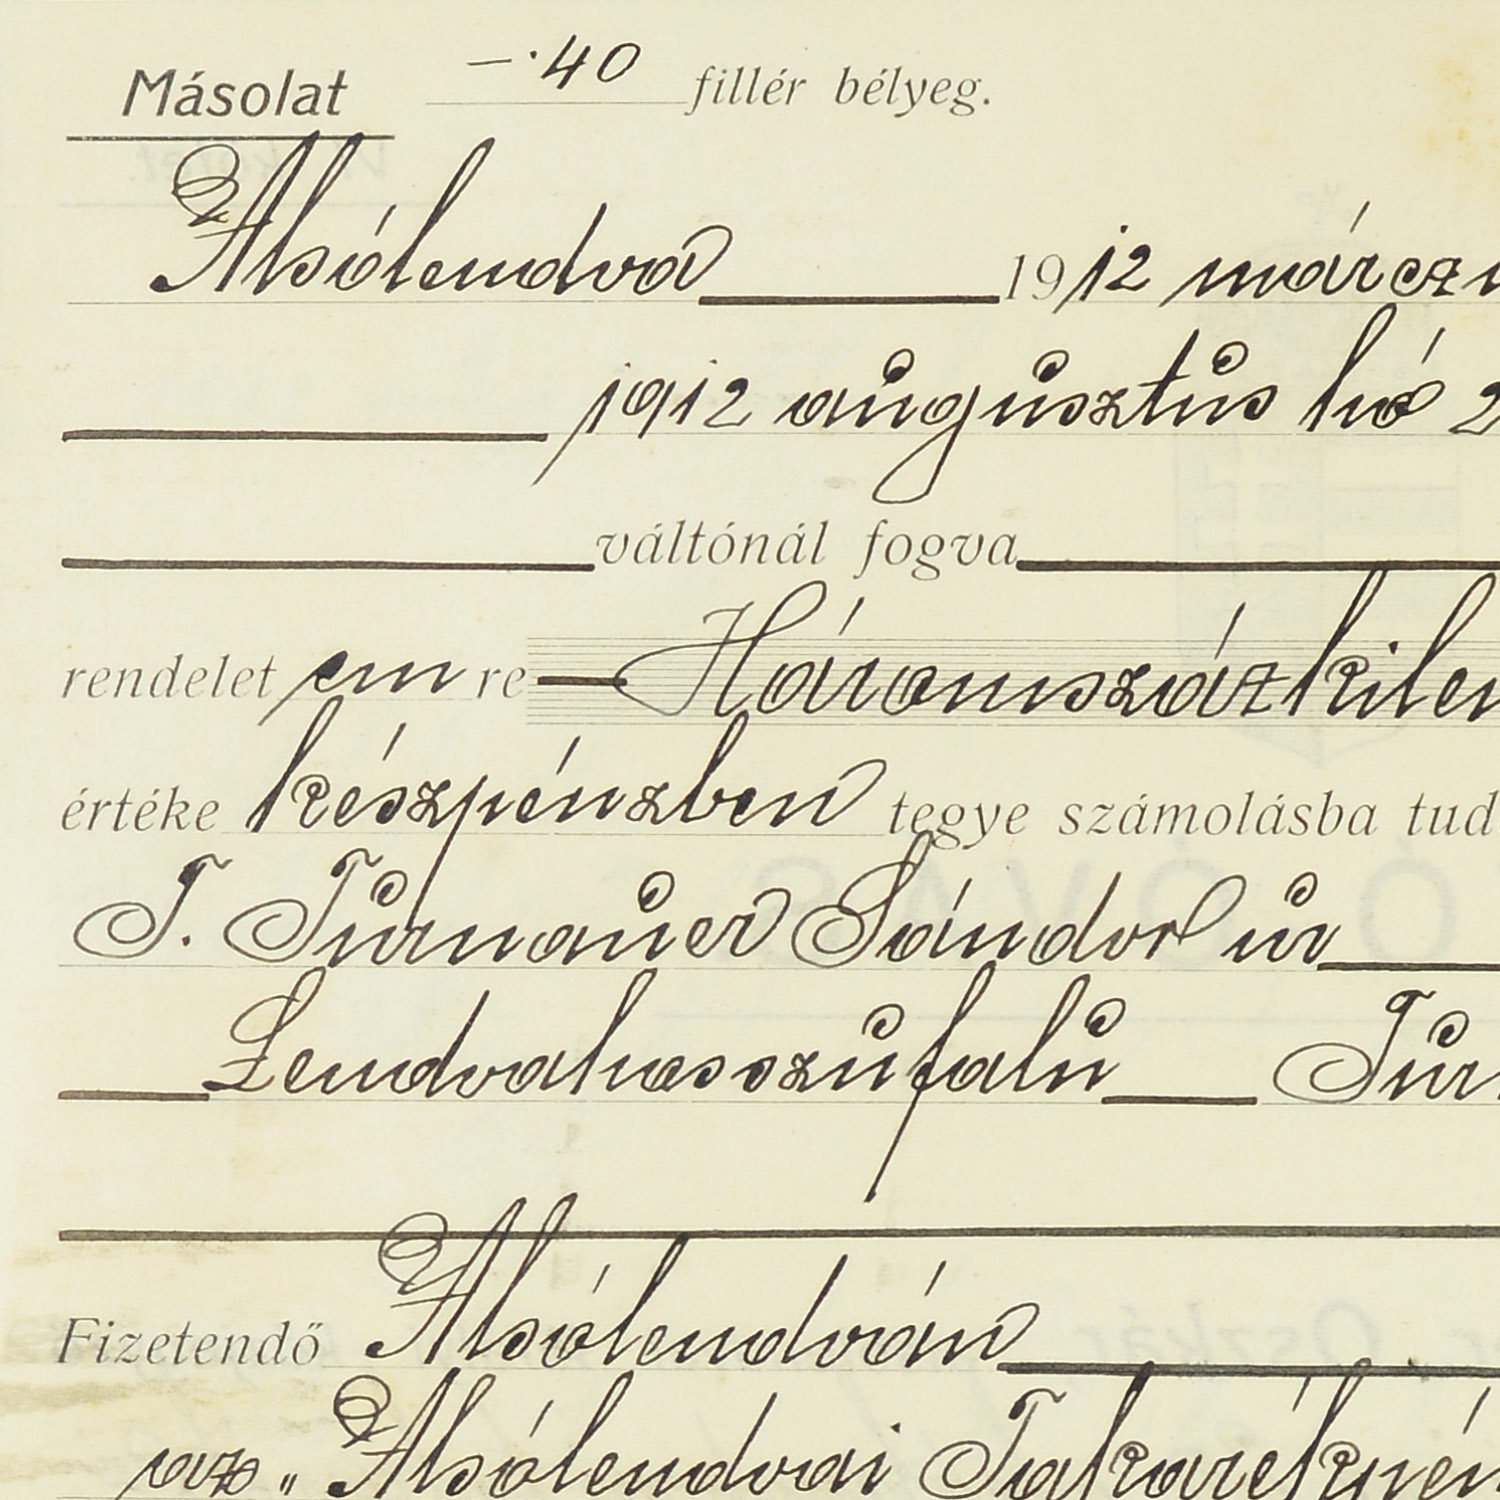 Másolat —·40 fillér bélyeg.
Alsólendva 1912 márczi
1912 augusztus hó 2
váltónál fogva
rendelet em re Háromszázkilen
értéke készpénzben tegye számolásba tud
T. Turnauer Sándor úr
Lendvahosszúfalu Tur
Fizetendő Alsólendván
az „Alsólendvai Takarékpén